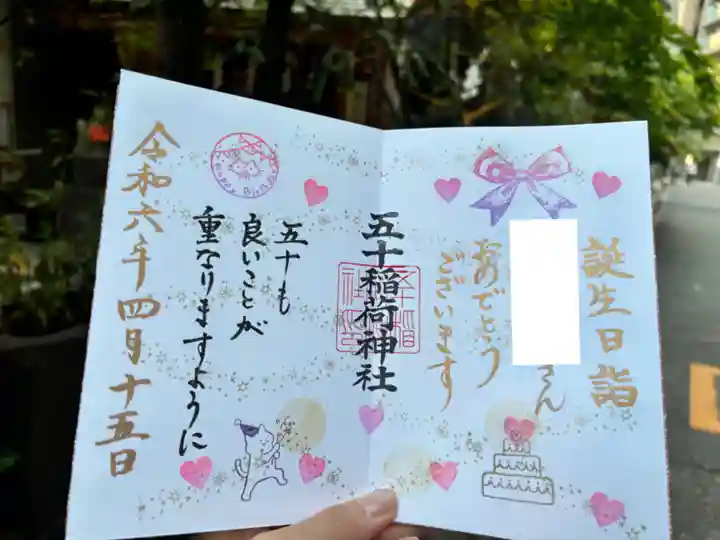 誕生日詣
さん
おめでとう
ございます
五十稲荷神社
五十も
良いことが
重なりますように
令和六年四月十五日